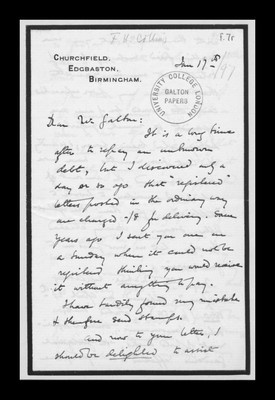 F.7r
CHURCHFIELD,
EDGBASTON,
BIRMINGHAM.
Jan 17th
UNIVERSITY COLLEGE LONDON
GALTON
PAPERS
Dear Mr Galton:
It is a long time
after to repay an unknown
debt, but I discovered only a
day or so ago that "registered"
letters posted in the ordinary way
are charged -/8 for delivery. Some
years ago I sent you one on
a Sunday when it could not be
registered thinking you would receive
it without anything to pay.
I have tardily found my mistake
& therefore send stamps.
and now to your letter, I
should be delighted to assist